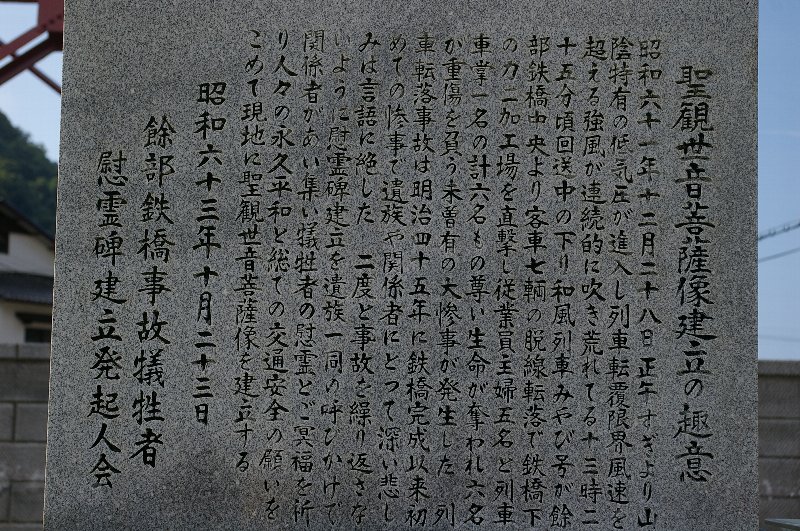 聖観世音菩薩像建立の趣意
昭和六十一年十二月二十八日正午すぎより山
陰特有の低気圧が進入し列車転覆限界風速を
超える強風が連続的に吹き荒れてる十三時二
十五分頃回送中の下り和風列車みやび号が餘
部鉄橋中央より客車七輌の脱線転落で鉄橋下
のカニ加工場を直撃し従業員主婦五名と列車
車掌一名の計六名もの尊い生命が奪われ六名
が重傷を負う未曽有の大惨事が発生した 列
車転落事故は明治四十五年に鉄橋完成以来初
めての惨事で遺族や関係者にとって深い悲し
みは言語に絶した 二度と事故を繰り返さな
いように慰霊碑建立を遺族一同の呼びかけで
関係者があい集い犠牲者の慰霊とご冥福を祈
り人々の永久平和と総ての交通安全の願いを
こめて現地に聖観世音菩薩像を建立する
昭和六十三年十月二十三日
餘部鉄橋事故犠牲者
慰霊碑建立発起人会